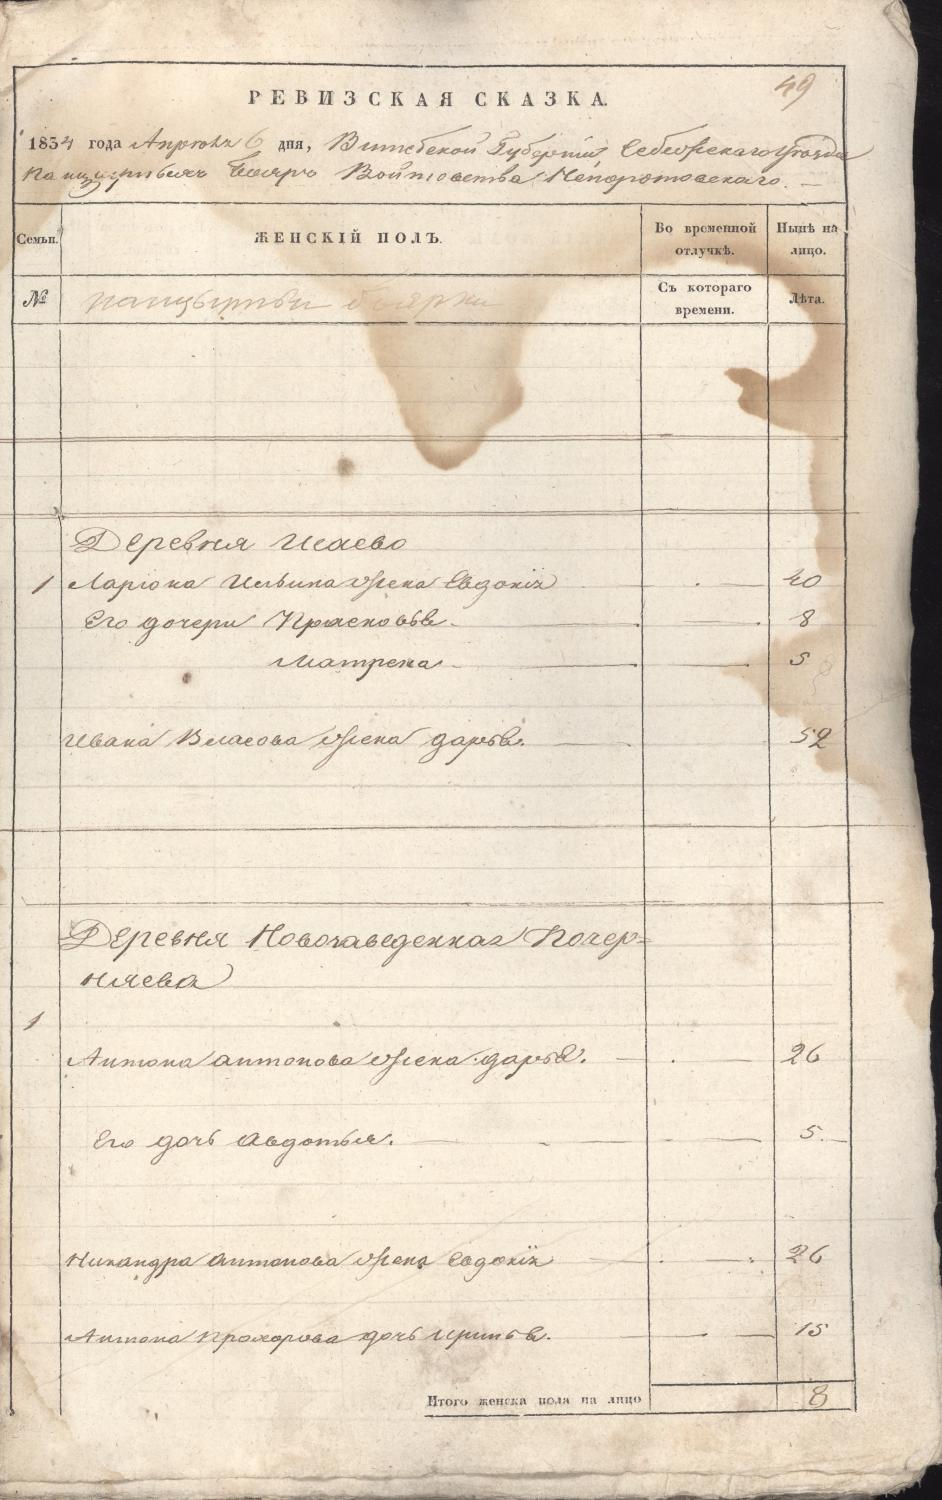 49
РЕВИЗСКАЯ СКАЗКА.
1834 года Апреля 6 дня, Витебской Губернии, Себежскаго Уезда
Панцырныхъ Бояръ Войтовства Непоротовскаго.
Семьи. ЖЕНСКІЙ ПОЛЪ. Во временной отлучкѣ. Нынѣ на лицо.
№ панцырныи боярки Съ котораго времени. Лѣта.
Деревня Исаево
1 Лариона Ильина жена Евдокія 40
Его дочери Прасковья 8
Матрена 5
Ивана Власова жена дарья. 52
Деревня Новозаведенная Почер=
няева
1
Антона антонова жена дарья. 26
Его дочь авдотья. 5.
Никандра антонова жена Евдокія 26
Антона прохорова дочь ирина. 15
Итого женска пола на лицо 8